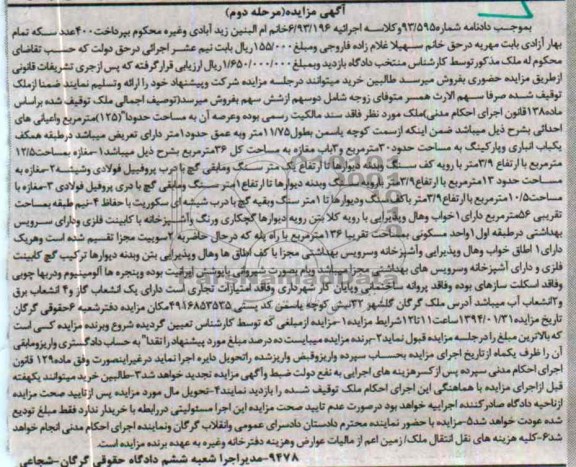 آگهی مزایده(مرحله دوم)
بموجب دادنامه شماره۹۳/۵۹۵وکلاسه اجرائیه ۶/۹۳/۱۹۶خانم ام البنین زید آبادی وغیره محکوم بپرداخت۴۰۰عدد سکه تمام
بهار آزادی بابت مهریه درحق خانم سهیلا غلام زاده فاروجی ومبلغ۱۵۵/۰۰۰ریال بابت نیم عشر اجرائی درحق دولت که حسب تقاضای
محکوم له ملک مذکور توسط کارشناس منتخب دادگاه بازدید وبمبلغ۱/۶۵۰/۰۰۰/۰۰۰ریال ارزیابی قرار گرفته که پس ازجری تشریفات قانونی
ازطریق مزایده حضوری بفروش میرسد طالبین خرید میتوانند درجلسه مزایده شرکت وپیشنهاد خود را ارائه وتسلیم نمایند ضمنا ازملک
توقیف شده صرفا سهم الارث همسر متوفای زوجه شامل دوسهم ازشش سهم بفروش میرسد(توصیف اجمالی ملک توقیف شده براساس
ماده۱۳۸قانون اجرای احکام مدنی)ملک مورد نظر فاقد سند مالکیت رسمی بوده وعرصه آن به مساحت حدودا"(۱۲۵)مترمربع واعیانی های
احداثی بشرح ذیل میباشد ضمن اینکه ازسمت کوچه یاسمن بطول۱۱/۷۵متر وبه عمق حدود۱متر دارای تعریض میباشد درطبقه همکف
یکباب انباری وپارکینگ به مساحت حدود۳۰مترمربع و۳باب مغازه به مساحت کل ۳۶مترمربع بشرح ذیل میباشد۱-مغازه مساحت۱۲/۵
مترمربع با ارتفاع ۳/۹متر با رویه کف سنگ و دیوارها تا ارتفاع یک متر سنگ ومابقی گچ با درب پروفیل فولادی وشیشه۲-مغازه به
مساحت حدود ۱۳مترمربع با ارتفاع۳/۹متر بارویه سنگ وبدنه دیوارها تا ارتفاع۱متر سنگ ومابقی گچ با دری پروفیل فولادی ۳-مغازه با
مساحت۱۰/۵مترمربع با ارتفاع ۳/۹متر باکف سنگ ودیوارها تا ۱متر سنگ وبقیه گچ با درب شیشه ای سکوریت با حفاظ ۴-نیم طبقه بمساحت
تقریبی ۵۶مترمربع دارای ۱خواب وهال وپذیرایی با رویه کلا بتن رویه دیوارها گچکاری ورنگ وآشپزخانه با کابینت فلزی ودارای سرویس
بهداشتی درطبقه اول ۱واحد مسکونی بمساحت تقریبا ۱۳۶مترمربع با راه پله که درحال حاضر به ۲سوییت مجزا تقسیم شده است وهریک
دارای۱ اطاق خواب وهال وپذیرایی وآشپزخانه وسرویس بهداشتی مجزا با کف اطاق ها وهال وپذیرایی بتن وبدنه دیوارها ترکیب گچ کابینت
فلزی و دارای آشپزخانه وسرویس های بهداشتی مجزا میباشد وبام بصورت شیروانی باپوشش ایرانیت بوده وپنجره ها آلومینیوم ودربها چوبی
وفاقد اسکلت سازهای بوده وفاقد پروانه ساختمانی وپایان کار شهرداری وفاقد امتیازات تجاری است دارای یک انشعاب گاز و۴ انشعاب برق
و۲انشعاب آب میباشد آدرس ملک گرگان گلشهر ۳۲نبش کوچه یاسمن کد پستی ۴۹۱۶۸۵۳۵۳۵مکان مزایده دفترشعبه ۶حقوقی گرگان
تاریخ مزایده۱۳۹۴/۰۱/۳۱ساعت۱۱تا۱۲شرایط مزایده۱-مزایده ازمبلغی که توسط کارشناس تعیین گردیده شروع وبرنده مزایده کسی است
که بالاترین مبلغ را درجلسه مزایده قبول نماید۲-برنده مزایده میبایست ده درصد مبلغ مورد پیشنهاد را نقدا" به حساب دادگستری واریز ومابقی
آن را ظرف یکماه ازتاریخ اجرای مزایده بحساب سپرده واریز وقبض واریز شده راتحویل دایره اجرا نماید درغیراینصورت وفق ماده۱۲۹ قانون
اجرای احکام مدنی سپرده پس ازکسرهزینه های اجرایی به نفع دولت ضبط وآگهی مزایده تجدید خواهد شد۳-طالبین خرید میتوانند یکهفته
قبل ازاجرای مزایده با هماهنگی این اجرای احکام ملک توقیف شده را بازدید نمایند۴-تحویل مال مورد مزایده پس ازتایید صحت مزایده
ازناحیه دادگاه صادرکننده اجراییه خواهد بود درصورت عدم تایید صحت مزایده این اجرا مسئولیتی دررابطه با خریدار ندارد فقط مبلغ تودیع
شده عودت خواهد شد۵-مزایده با حضور نماینده محترم دادستان دادسرای عمومی وانقلاب گرگان ونماینده اجرای احکام مدنی انجام خواهد
شد۶-کلیه هزینه های نقل انتقال ملک/زمین اعم از مالیات عوارض وهزینه دفترخانه وغیره به عهده برنده مزایده است.
۹۴۷۸-مدیراجرا شعبه ششم دادگاه حقوقی گرگان-شجاعی